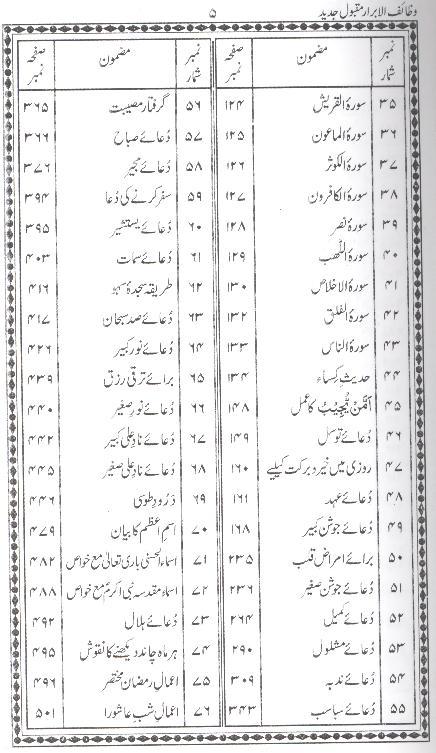 وظائف الابرار مقبول جدید
۵
نمبر شمار مضمون صفحہ نمبر
۳۵ سورۂ القریش ۱۲۴
۳۶ سورۂ الماعون ۱۲۵
۳۷ سورۂ الکوثر ۱۲۶
۳۸ سورۂ الکافرون ۱۲۷
۳۹ سورۂ نصر ۱۲۸
۴۰ سورۂ اللّھب ۱۲۹
۴۱ سورۂ الاخلاص ۱۳۰
۴۲ سورۂ الفلق ۱۳۲
۴۳ سورۂ الناس ۱۳۳
۴۴ حدیث کساء ۱۳۴
۴۵ اَمَّنْ یُّجِیْبُ کا عمل ۱۴۸
۴۶ دُعائے توسل ۱۴۹
۴۷ روزی میں خیر و برکت کیلیے ۱۶۰
۴۸ دُعائے عہد ۱۶۱
۴۹ دُعائے جوشن کبیر ۱۶۸
۵۰ برائے امراض قلب ۲۳۵
۵۱ دُعائے جوشن صغیر ۲۳۶
۵۲ دُعائے کمیل ۲۶۴
۵۳ دُعائے مشلول ۲۹۰
۵۴ دُعائے ندبہ ۳۰۹
۵۵ دُعائے سباسب ۳۴۳
نمبر شمار مضمون صفحہ نمبر
۵۶ گرفتار مصیبت ۳۶۵
۵۷ دُعائے صباح ۳۶۶
۵۸ دُعائے مجیر ۳۷۶
۵۹ سفر کرنے کی دُعا ۳۹۴
۶۰ دُعائے یستشیر ۳۹۵
۶۱ دُعائے سمات ۴۰۳
۶۲ طریقہ سجدۂ سہو ۴۱۶
۶۳ دُعائے صد سبحان ۴۱۷
۶۴ دُعائے نور کبیر ۴۲۶
۶۵ برائے ترقی رزق ۴۳۹
۶۶ دُعائے نور صغیر ۴۴۰
۶۷ دُعائے ناد علی کبیر ۴۴۲
۶۸ دُعائے ناد علی صغیر ۴۴۵
۶۹ دُرود طوسی ۴۴۶
۷۰ اسم اعظم کا بیان ۴۷۹
۷۱ اسماء الحسنیٰ باری تعالیٰ مع خواص ۴۸۲
۷۲ اسماء مقدسہ نبی اکرمؐ مع خواص ۴۸۸
۷۳ دُعائے ہلال ۴۹۲
۷۴ ہر ماہ چاند دیکھنے کا نقوش ۴۹۵
۷۵ اعمال رمضان مختصر ۴۹۶
۷۶ اعمال شب عاشورا ۵۰۱